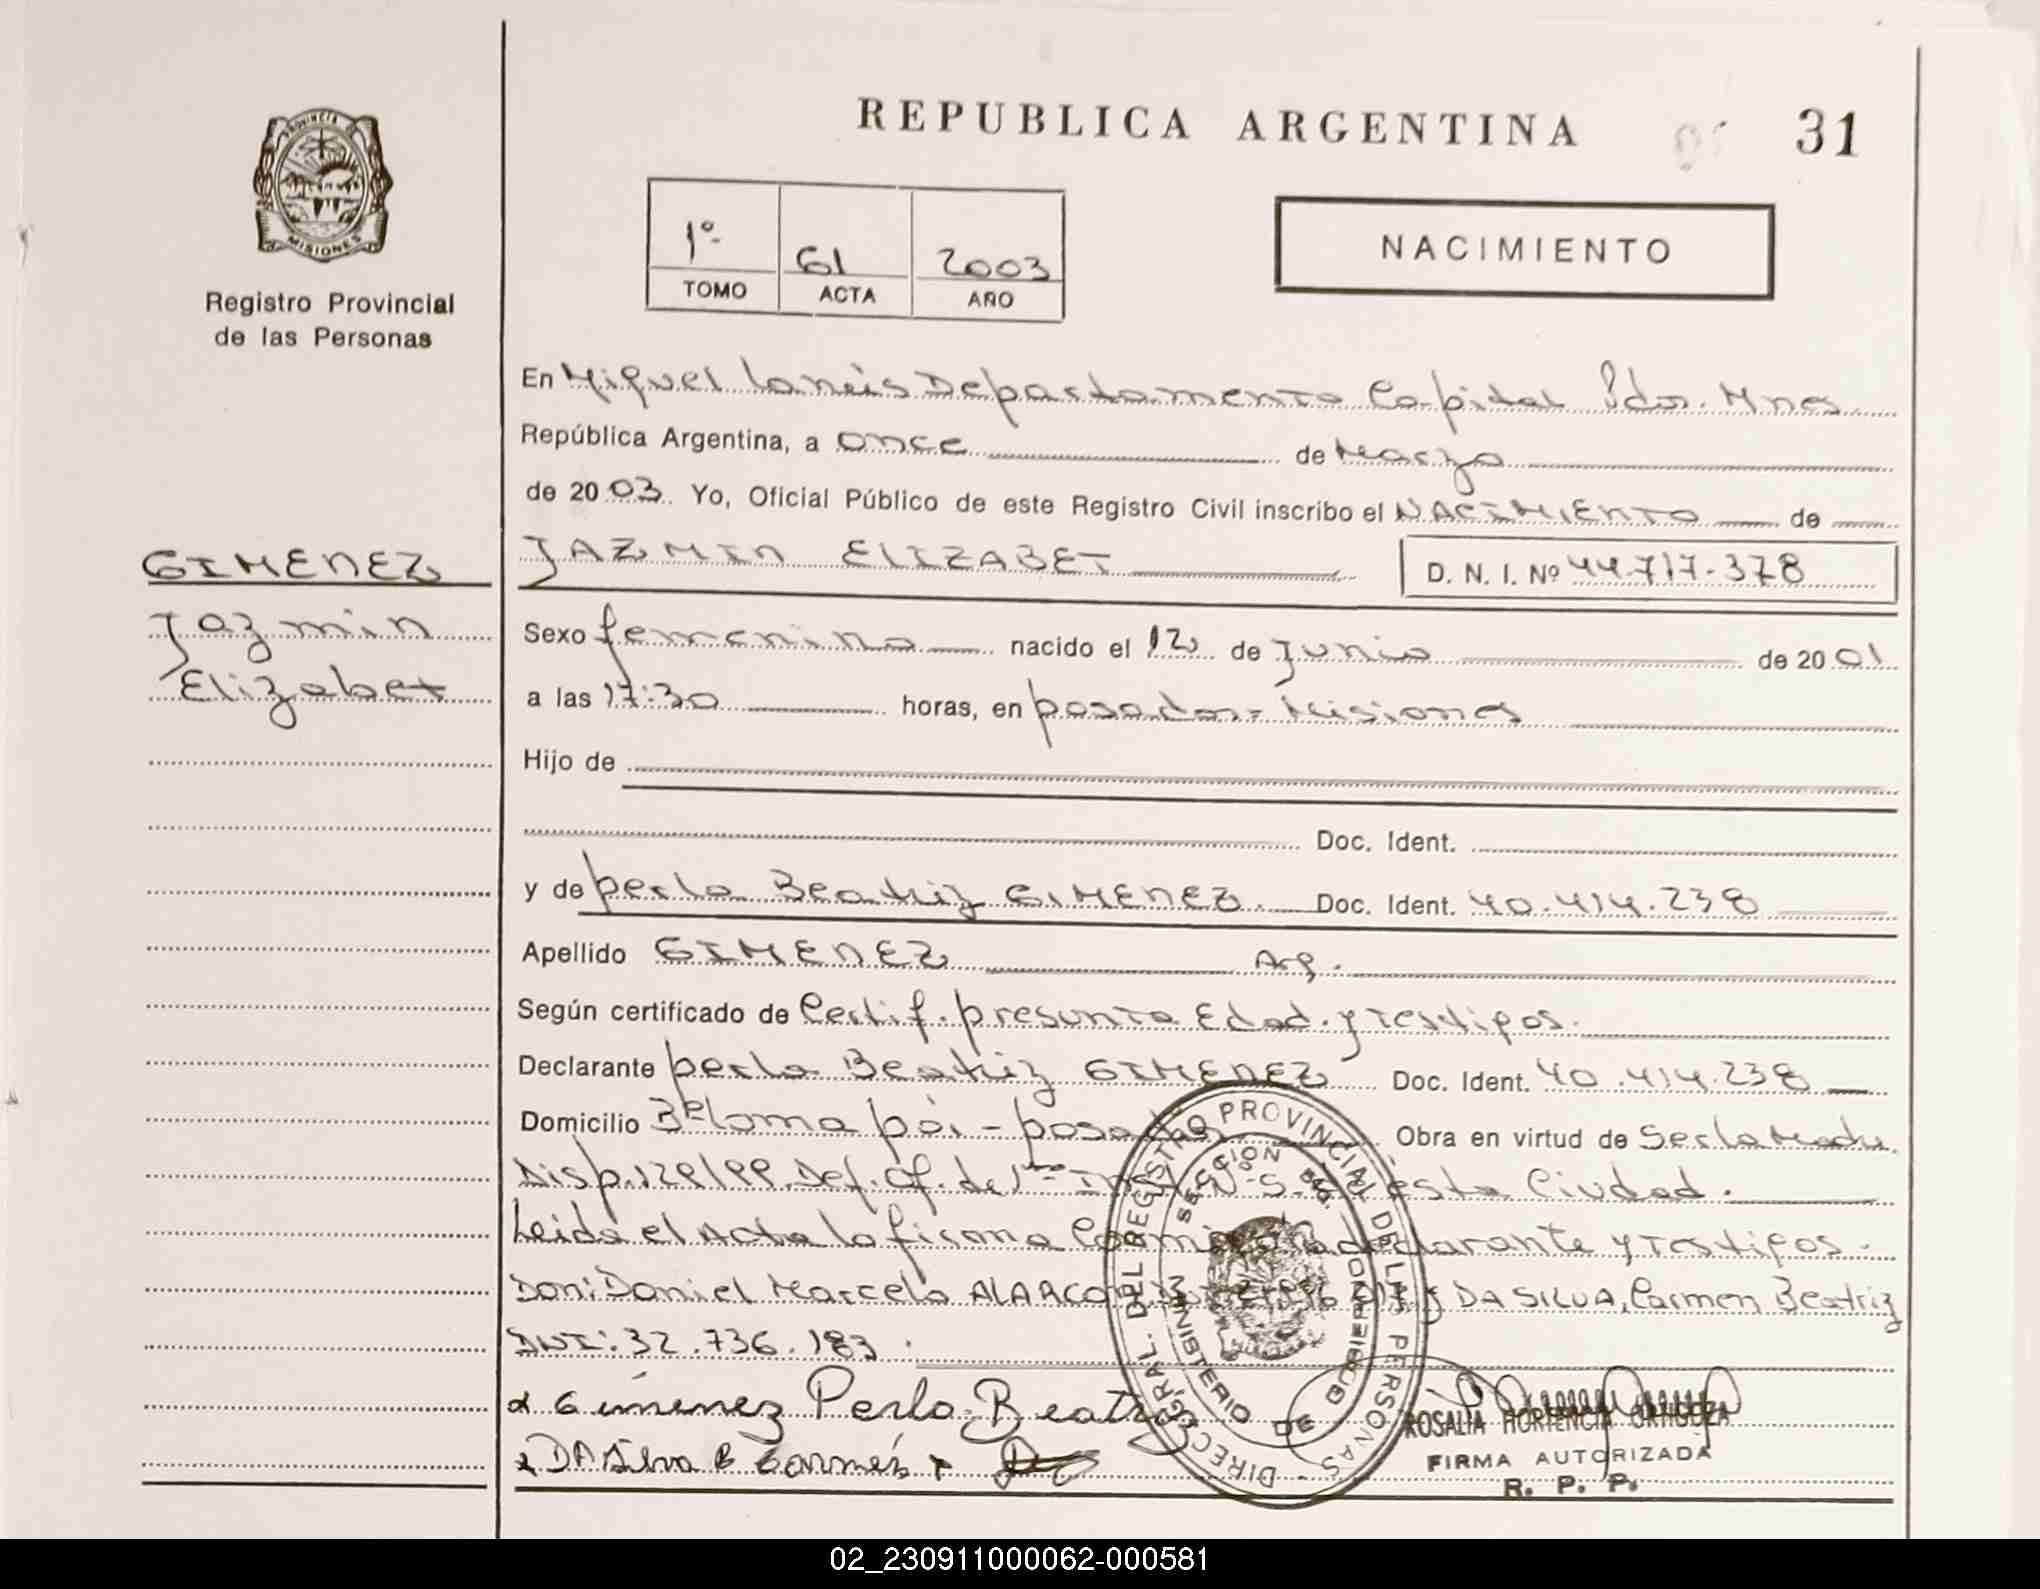 REPUBLICA ARGENTINA
31
PROVINCIA DE
MISIONES
Registro Provincial
de las Personas
1º 61 2003
TOMO ACTA AÑO
NACIMIENTO
En Miguel Lanús Departamento Capital Pdas. Mnes
República Argentina, a once de Marzo
de 2003 Yo, Oficial Público de este Registro Civil inscribo el NACIMIENTO de
GIMENEZ
Jazmin
Elizabet
JAZMIN ELIZABET D. N. I. Nº 44.717.378
Sexo femenino nacido el 12 de Junio de 2001
a las 17:30 horas, en posadas - Misiones
Hijo de
Doc. Ident.
y de perla Beatriz GIMENEZ. Doc. Ident. 40.414.238
Apellido GIMENEZ Arg.
Según certificado de Certif. presunta Edad. y testigos.
Declarante perla Beatriz GIMENEZ Doc. Ident. 40.414.238
Domicilio Bº loma poi - posadas Obra en virtud de Ser la Madre
Disp. Def. Of. de 1ra de ésta Ciudad.
Leida el Acta la firma declarante y testigos.
Don: Daniel Marcelo ALARCON y DA SILVA, Carmen Beatriz
DNI: 32.736.183.
Gimenez Perla Beatriz
DA Silva B Carmen
DIREC. GRAL. DEL REGISTRO PROVINCIAL DE LAS PERSONAS
MINISTERIO DE GOBIERNO
SECCION
ROSALIA HORTENCIA
FIRMA AUTORIZADA
R. P. P.
02_230911000062-000581